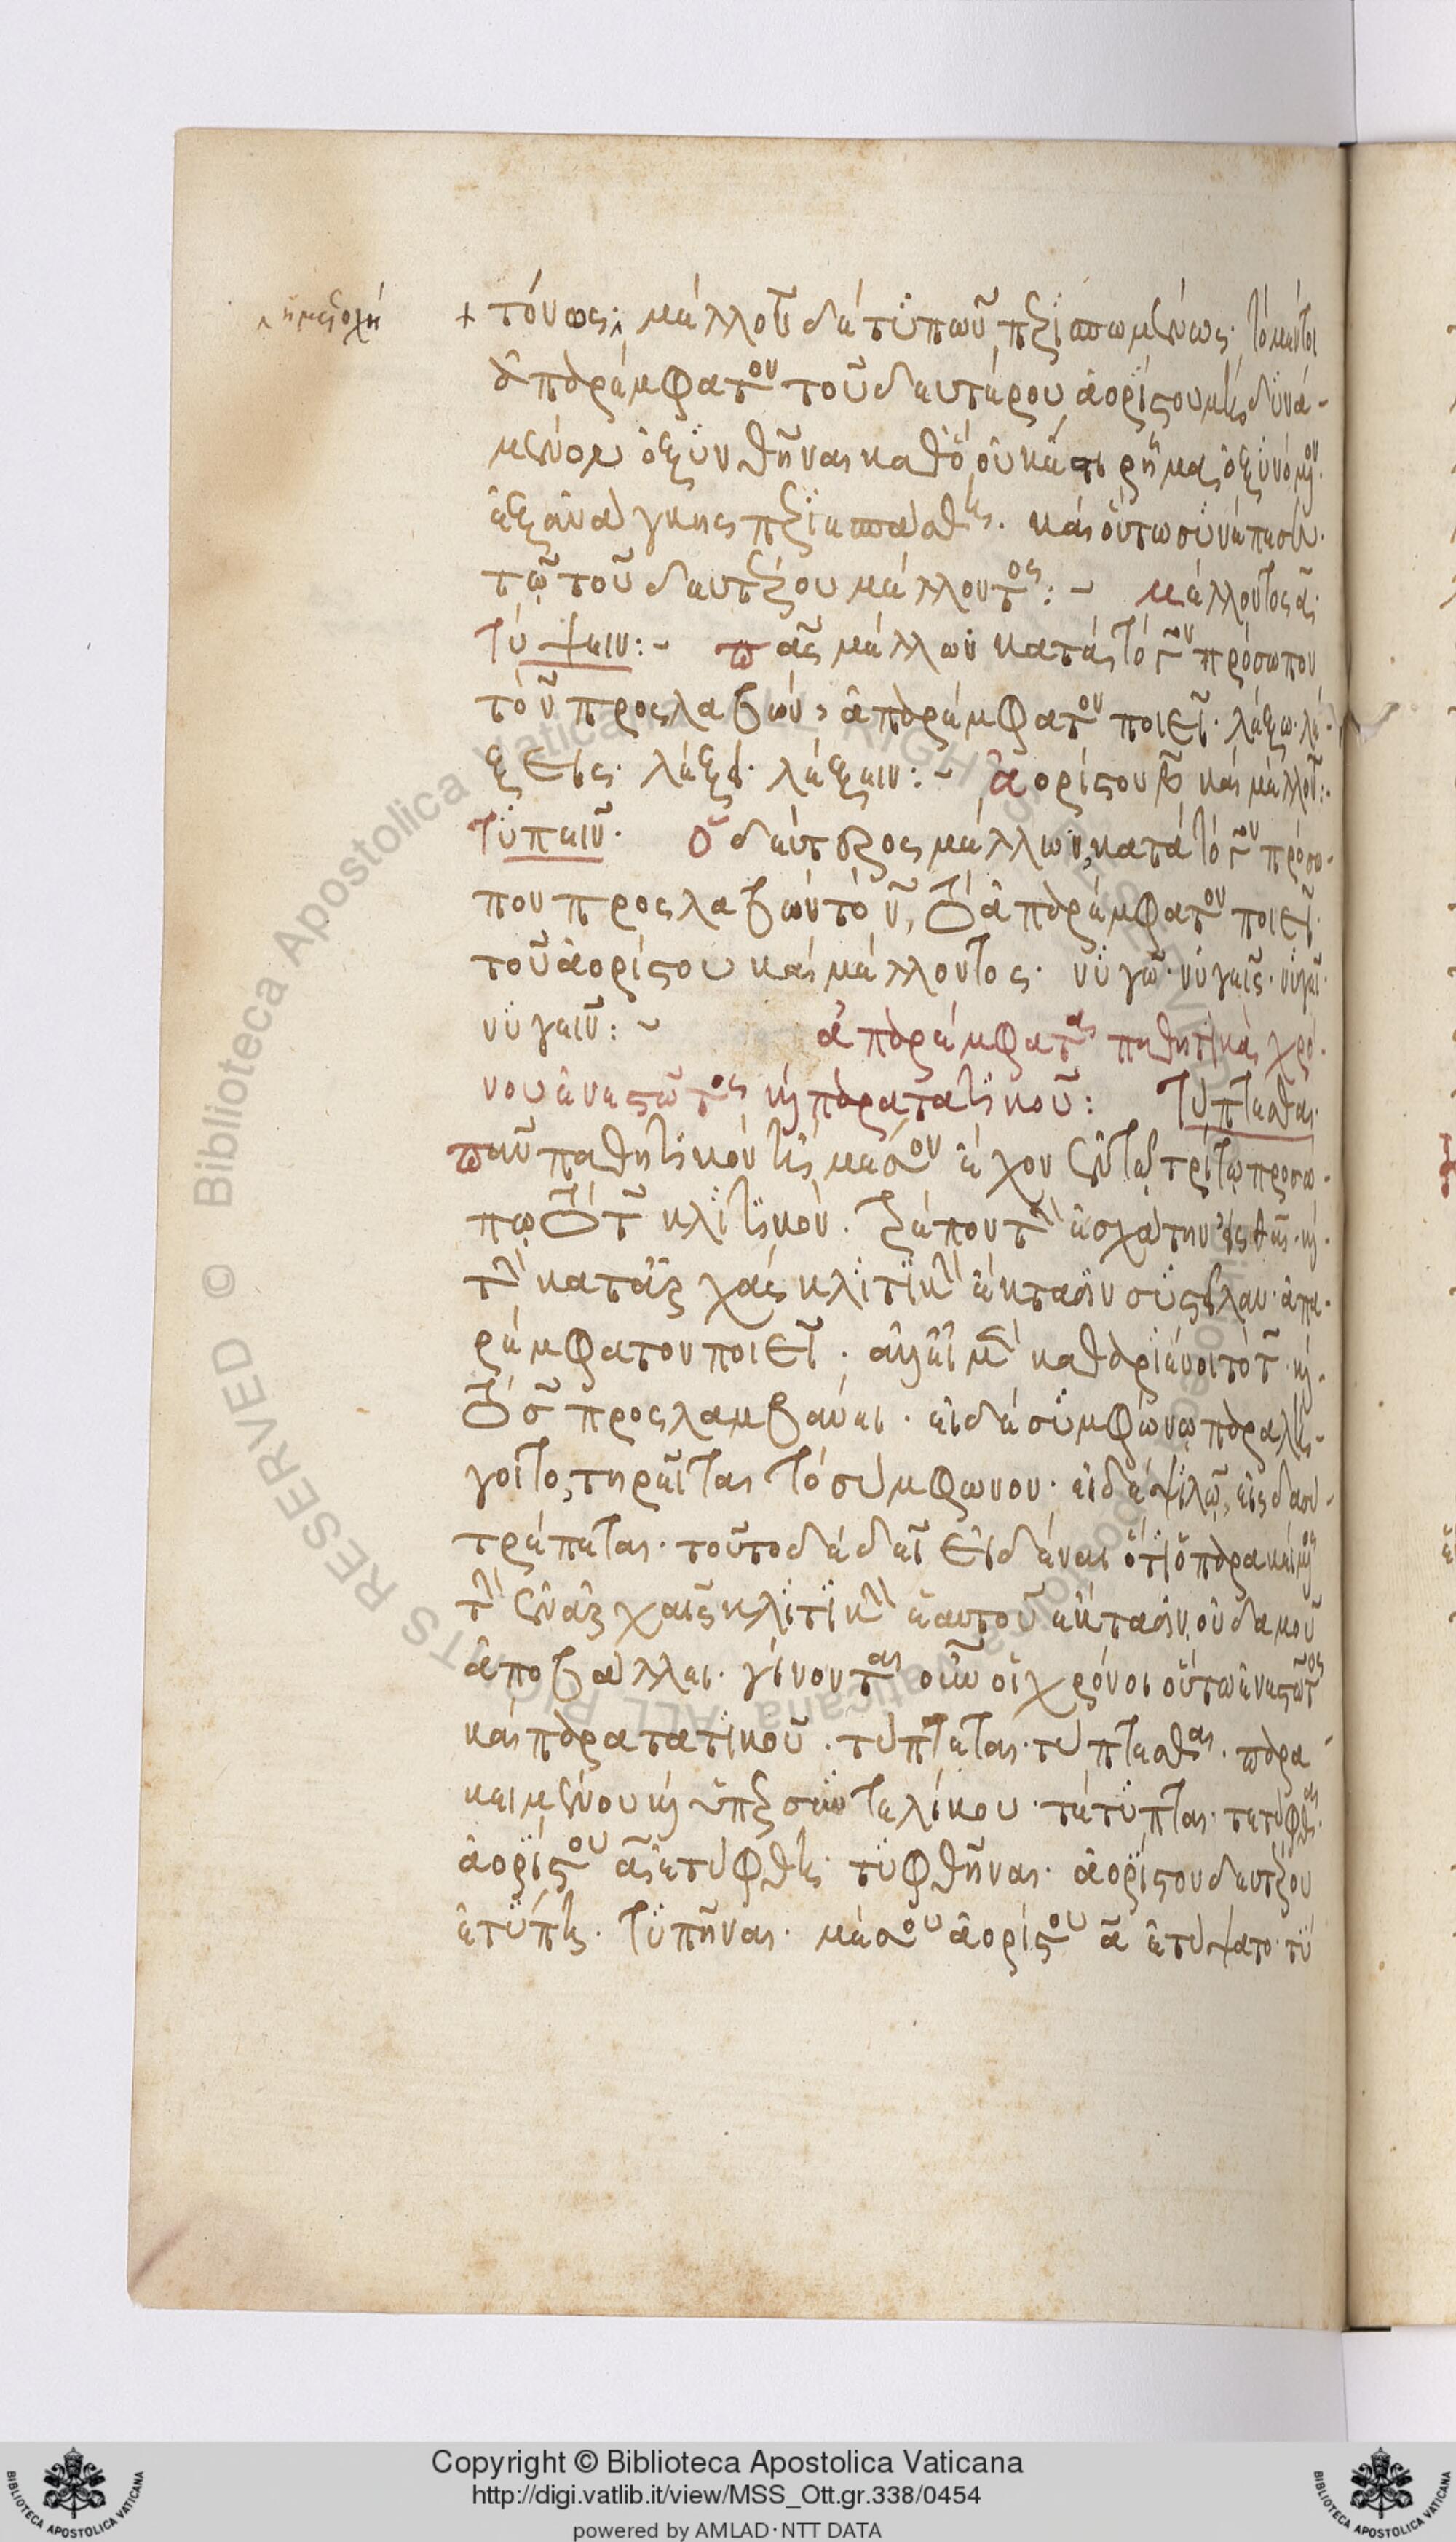 ἡ μετοχή
τόνως· μέλλον δὲ τυπῶν περισπωμένως· τὸ μέντοι
ἀπαρέμφατον τοῦ δευτέρου ἀορίστου μὴ δυνά-
μενον ὀξυνθῆναι καθὸ οὐκ ἔστι ῥῆμα ὀξυνόμενον·
ἐξ ἀνάγκης περιεσπάσθη. καὶ οὕτω συνέπεσεν
τῷ τοῦ δευτέρου μέλλοντος:~ μέλλοντος α΄
τύψειν:~ πᾶς μέλλων κατὰ τὸ γον πρόσωπον
τὸ ν προσλαβὼν, ἀπαρέμφατον ποιεῖ· λέξω· λέ-
ξεις· λέξει· λέξειν:~ ἀορίστου β καὶ μέλλοντος:
τυπεῖν· ὁ δεύτερος μέλλων, κατὰ τὸ γον πρόσω-
πον προσλαβὼν τὸ ν, τὸ ἀπαρέμφατον ποιεῖ
τοῦ ἀορίστου καὶ μέλλοντος· νυγῶ· νυγεῖς· νυγεῖ·
νυγεῖν:~ ἀπαρέμφατα παθητικὰ χρό-
νου ἐνεστῶτος καὶ παρατατικοῦ: τύπτεσθαι·
πᾶν παθητικὸν ἢ μέσον ἔχον ἐν τῷ τρίτῳ προσώ-
πῳ τὸ τ κλιτικὸν. τρέπον τὴν ἐσχάτην εἰς θαι· καὶ
τὴν κατ᾽ ἀρχὰς κλιτικὴν ἔκτασιν συστέλλον· ἀπα-
ρέμφατον ποιεῖ· ἀεὶ μὲν καθαριεύοι τὸ τ καὶ
τὸ σ προσλαμβάνει· εἰ δὲ συμφώνῳ παραλή-
γοιτο, τηρεῖται τὸ σύμφωνον· εἰ δὲ ψιλῷ, εἰς δασὺ
τρέπεται· τοῦτο δὲ δεῖ εἰδέναι ὅτι ὁ παρακείμενος
τὴν ἐν ἀρχαῖς κλιτικὴν ἑαυτοῦ ἔκτασιν, οὐδαμοῦ
ἀποβάλλει· γίνονται οὖν οἱ χρόνοι οὕτω ἐνεστῶτος
καὶ παρατατικοῦ· τύπτεται· τύπτεσθαι· παρα
κειμένου καὶ ὑπερσυντελίκου· τέτυπται· τετύφθαι·
ἀορίστου α ἐτύφθη· τυφθῆναι· ἀορίστου δευτέρου
ἐτύπη· τυπῆναι· μέσου ἀορίστου α ἐτύψατο· τύ
Copyright © Biblioteca Apostolica Vaticana
http://digi.vatlib.it/view/MSS_Ott.gr.338/0454
powered by AMLAD·NTT DATA
BIBLIOTECA APOSTOLICA VATICANA
BIBLIOTECA APOSTOLICA VATICANA